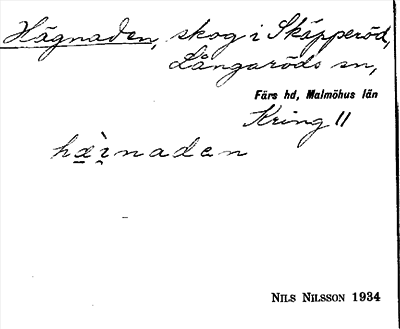 Hägnaden, skog i Skäpperöd,
Långaröds sn,
Färs hd, Malmöhus län
Kring 11
hæ̀i̯naden
NILS NILSSON 1934